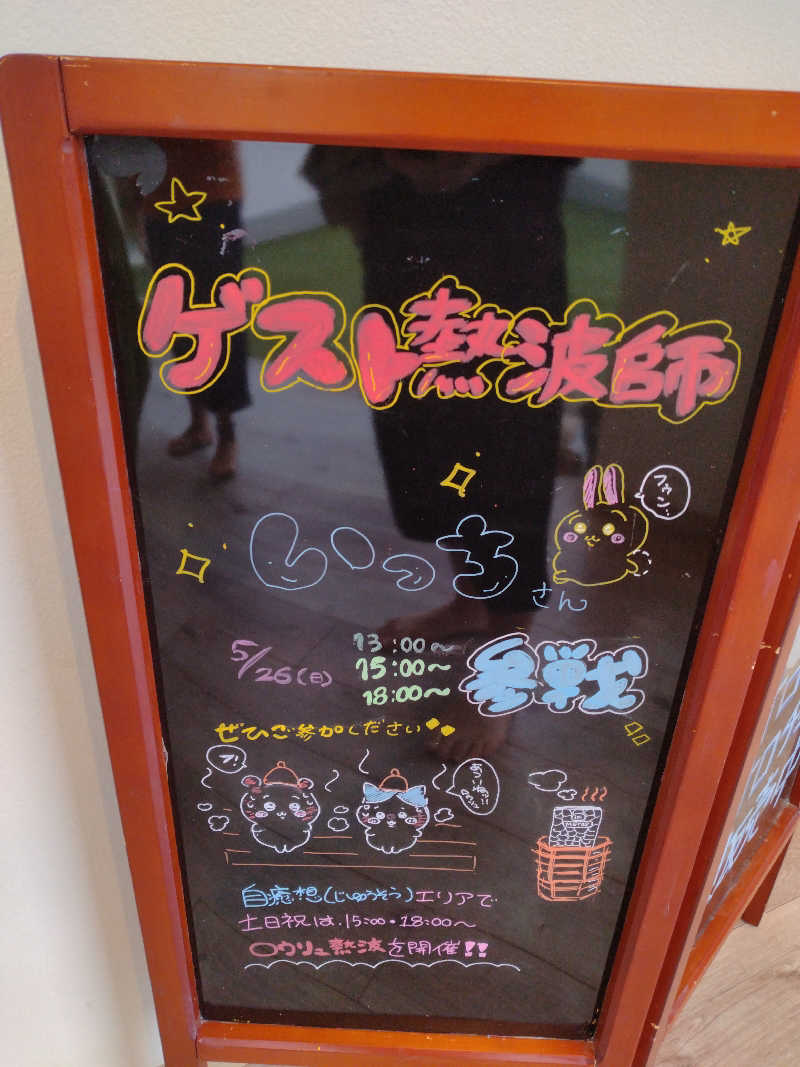 ゲスト熱波師
フゥン…
いっち
さん
5/26(日)
13:00〜
15:00〜
18:00〜
参戦
ぜひご参加ください
フ!
自癒想(じゆうそう)エリアで
土日祝は、15:00・18:00〜
〇ウリュ熱波を開催!!